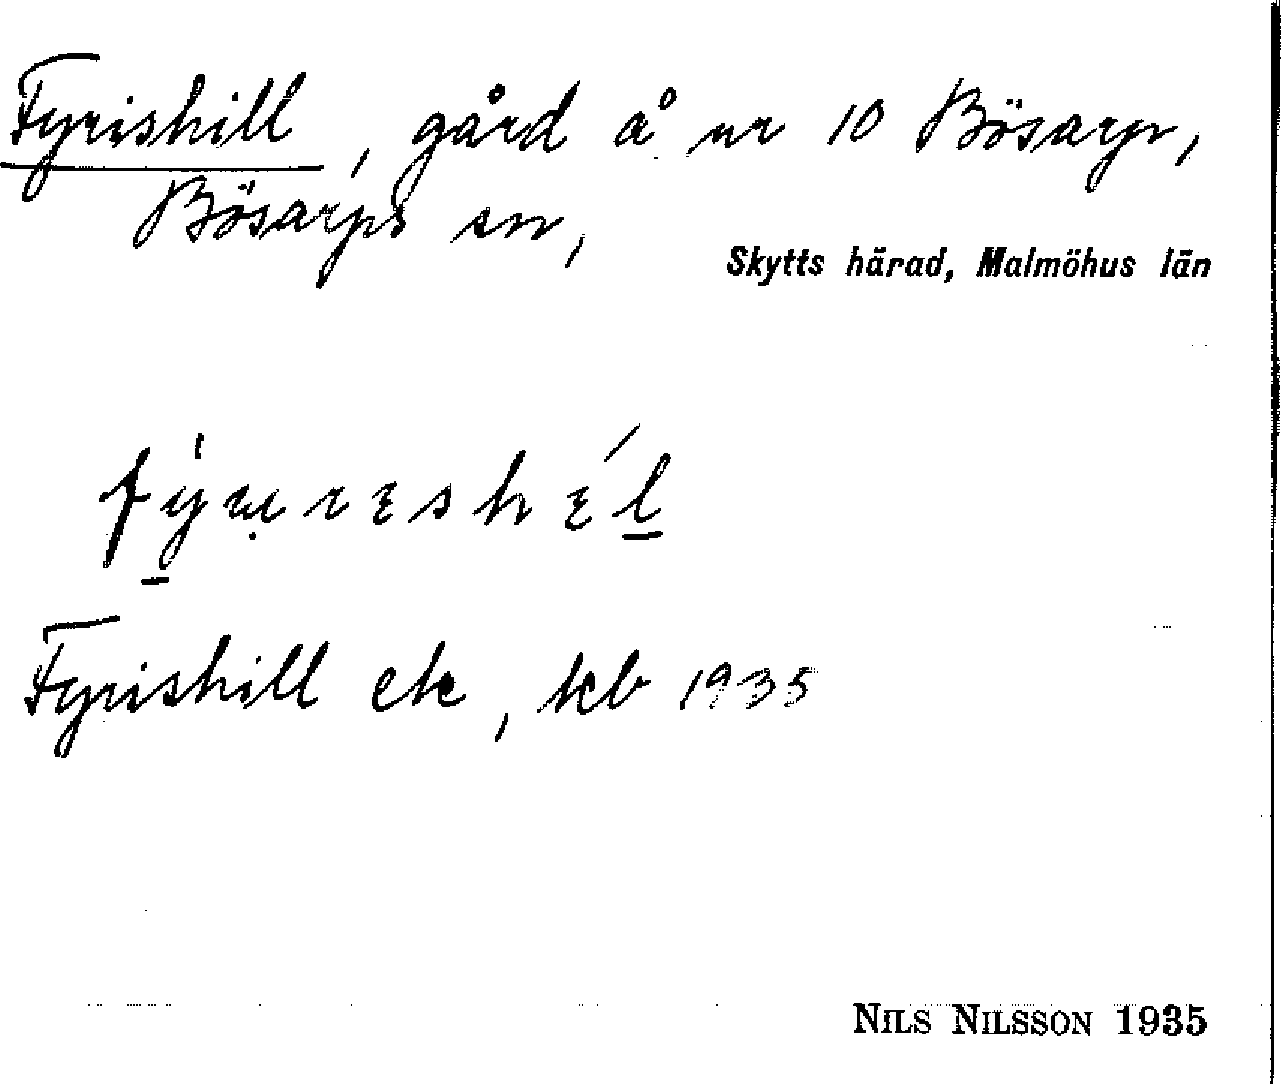 Fyrishill, gård å nr 10 Bösarp,
Bösarps sn,
Skytts härad, Malmöhus län
Fyrishill etc, tcb 1935
NILS NILSSON 1935